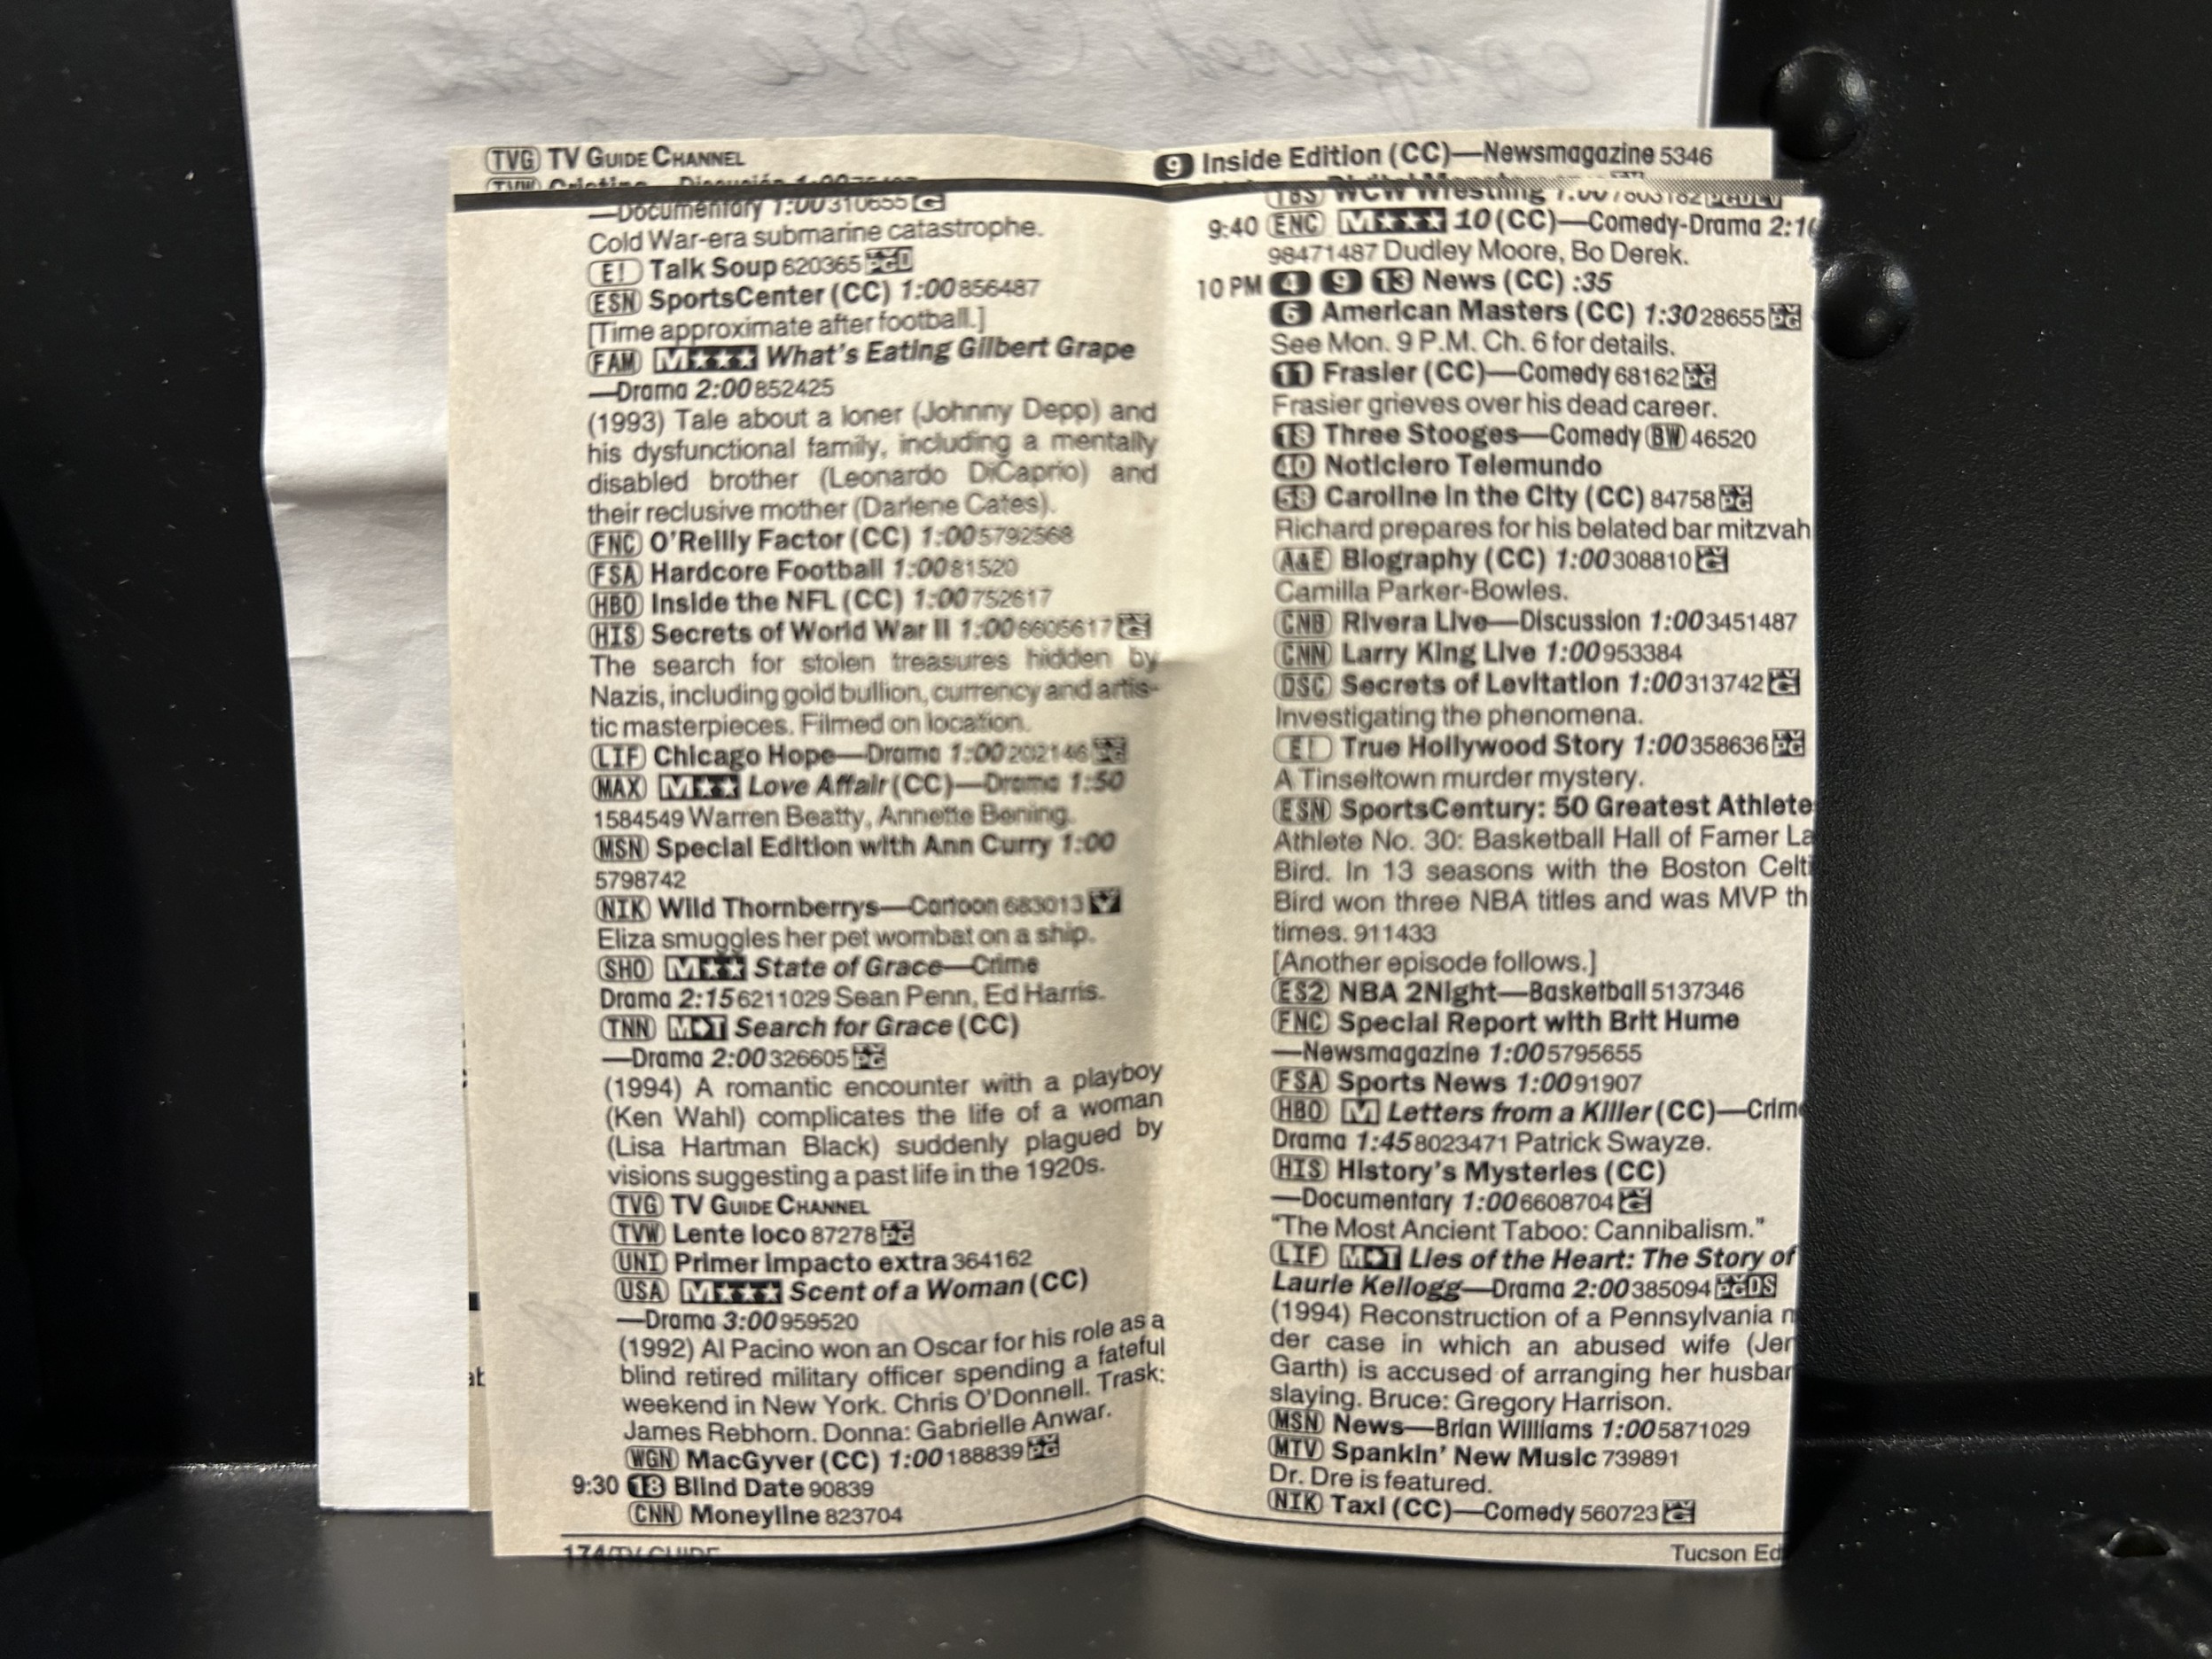 TVG TV GUIDE CHANNEL
—Documentary 1:00 310655 G
Cold War-era submarine catastrophe.
E! Talk Soup 620365
ESN SportsCenter (CC) 1:00 856487
[Time approximate after football.]
FAM M★★★ What's Eating Gilbert Grape
—Drama 2:00 852425
(1993) Tale about a loner (Johnny Depp) and
his dysfunctional family, including a mentally
disabled brother (Leonardo DiCaprio) and
their reclusive mother (Darlene Cates).
FNC O'Reilly Factor (CC) 1:00 5792568
FSA Hardcore Football 1:00 81520
HBO Inside the NFL (CC) 1:00 752617
HIS Secrets of World War II 1:00 6605617 TV G
The search for stolen treasures hidden by
Nazis, including gold bullion, currency and artis-
tic masterpieces. Filmed on location.
LIF Chicago Hope—Drama 1:00 202146 TV PG
MAX M★★ Love Affair (CC)—Drama 1:50
1584549 Warren Beatty, Annette Bening.
MSN Special Edition with Ann Curry 1:00
5798742
NIK Wild Thornberrys—Cartoon 683013 TV Y
Eliza smuggles her pet wombat on a ship.
SHO M★★ State of Grace—Crime
Drama 2:15 6211029 Sean Penn, Ed Harris.
TNN M♦T Search for Grace (CC)
—Drama 2:00 326605 TV PG
(1994) A romantic encounter with a playboy
(Ken Wahl) complicates the life of a woman
(Lisa Hartman Black) suddenly plagued by
visions suggesting a past life in the 1920s.
TVG TV GUIDE CHANNEL
TVW Lente loco 87278 TV PG
UNI Primer Impacto extra 364162
USA M★★★ Scent of a Woman (CC)
—Drama 3:00 959520
(1992) Al Pacino won an Oscar for his role as a
blind retired military officer spending a fateful
weekend in New York. Chris O'Donnell. Trask:
James Rebhorn. Donna: Gabrielle Anwar.
WGN MacGyver (CC) 1:00 188839 TV PG
9:30 18 Blind Date 90839
CNN Moneyline 823704
174/TV GUIDE
9 Inside Edition (CC)—Newsmagazine 5346
TBS WCW Wrestling 1:00 7803182
9:40 ENC M★★★ 10 (CC)—Comedy-Drama 2:1
98471487 Dudley Moore, Bo Derek.
10 PM 4 9 13 News (CC) :35
6 American Masters (CC) 1:30 28655 TV PG
See Mon. 9 P.M. Ch. 6 for details.
11 Frasier (CC)—Comedy 68162 TV PG
Frasier grieves over his dead career.
18 Three Stooges—Comedy BW 46520
40 Noticiero Telemundo
58 Caroline in the City (CC) 84758 TV PG
Richard prepares for his belated bar mitzvah
A&E Biography (CC) 1:00 308810 TV G
Camilla Parker-Bowles.
CNB Rivera Live—Discussion 1:00 3451487
CNN Larry King Live 1:00 953384
DSC Secrets of Levitation 1:00 313742 TV G
Investigating the phenomena.
E! True Hollywood Story 1:00 358636 TV PG
A Tinseltown murder mystery.
ESN SportsCentury: 50 Greatest Athlete
Athlete No. 30: Basketball Hall of Famer La
Bird. In 13 seasons with the Boston Celti
Bird won three NBA titles and was MVP th
times. 911433
[Another episode follows.]
ES2 NBA 2Night—Basketball 5137346
FNC Special Report with Brit Hume
—Newsmagazine 1:00 5795655
FSA Sports News 1:00 91907
HBO M Letters from a Killer (CC)—Crim
Drama 1:45 8023471 Patrick Swayze.
HIS History's Mysteries (CC)
—Documentary 1:00 6608704 TV G
"The Most Ancient Taboo: Cannibalism."
LIF M♦T Lies of the Heart: The Story of
Laurie Kellogg—Drama 2:00 385094 TV PG DS
(1994) Reconstruction of a Pennsylvania m
der case in which an abused wife (Jen
Garth) is accused of arranging her husban
slaying. Bruce: Gregory Harrison.
MSN News—Brian Williams 1:00 5871029
MTV Spankin' New Music 739891
Dr. Dre is featured.
NIK Taxi (CC)—Comedy 560723 TV G
Tucson Ed